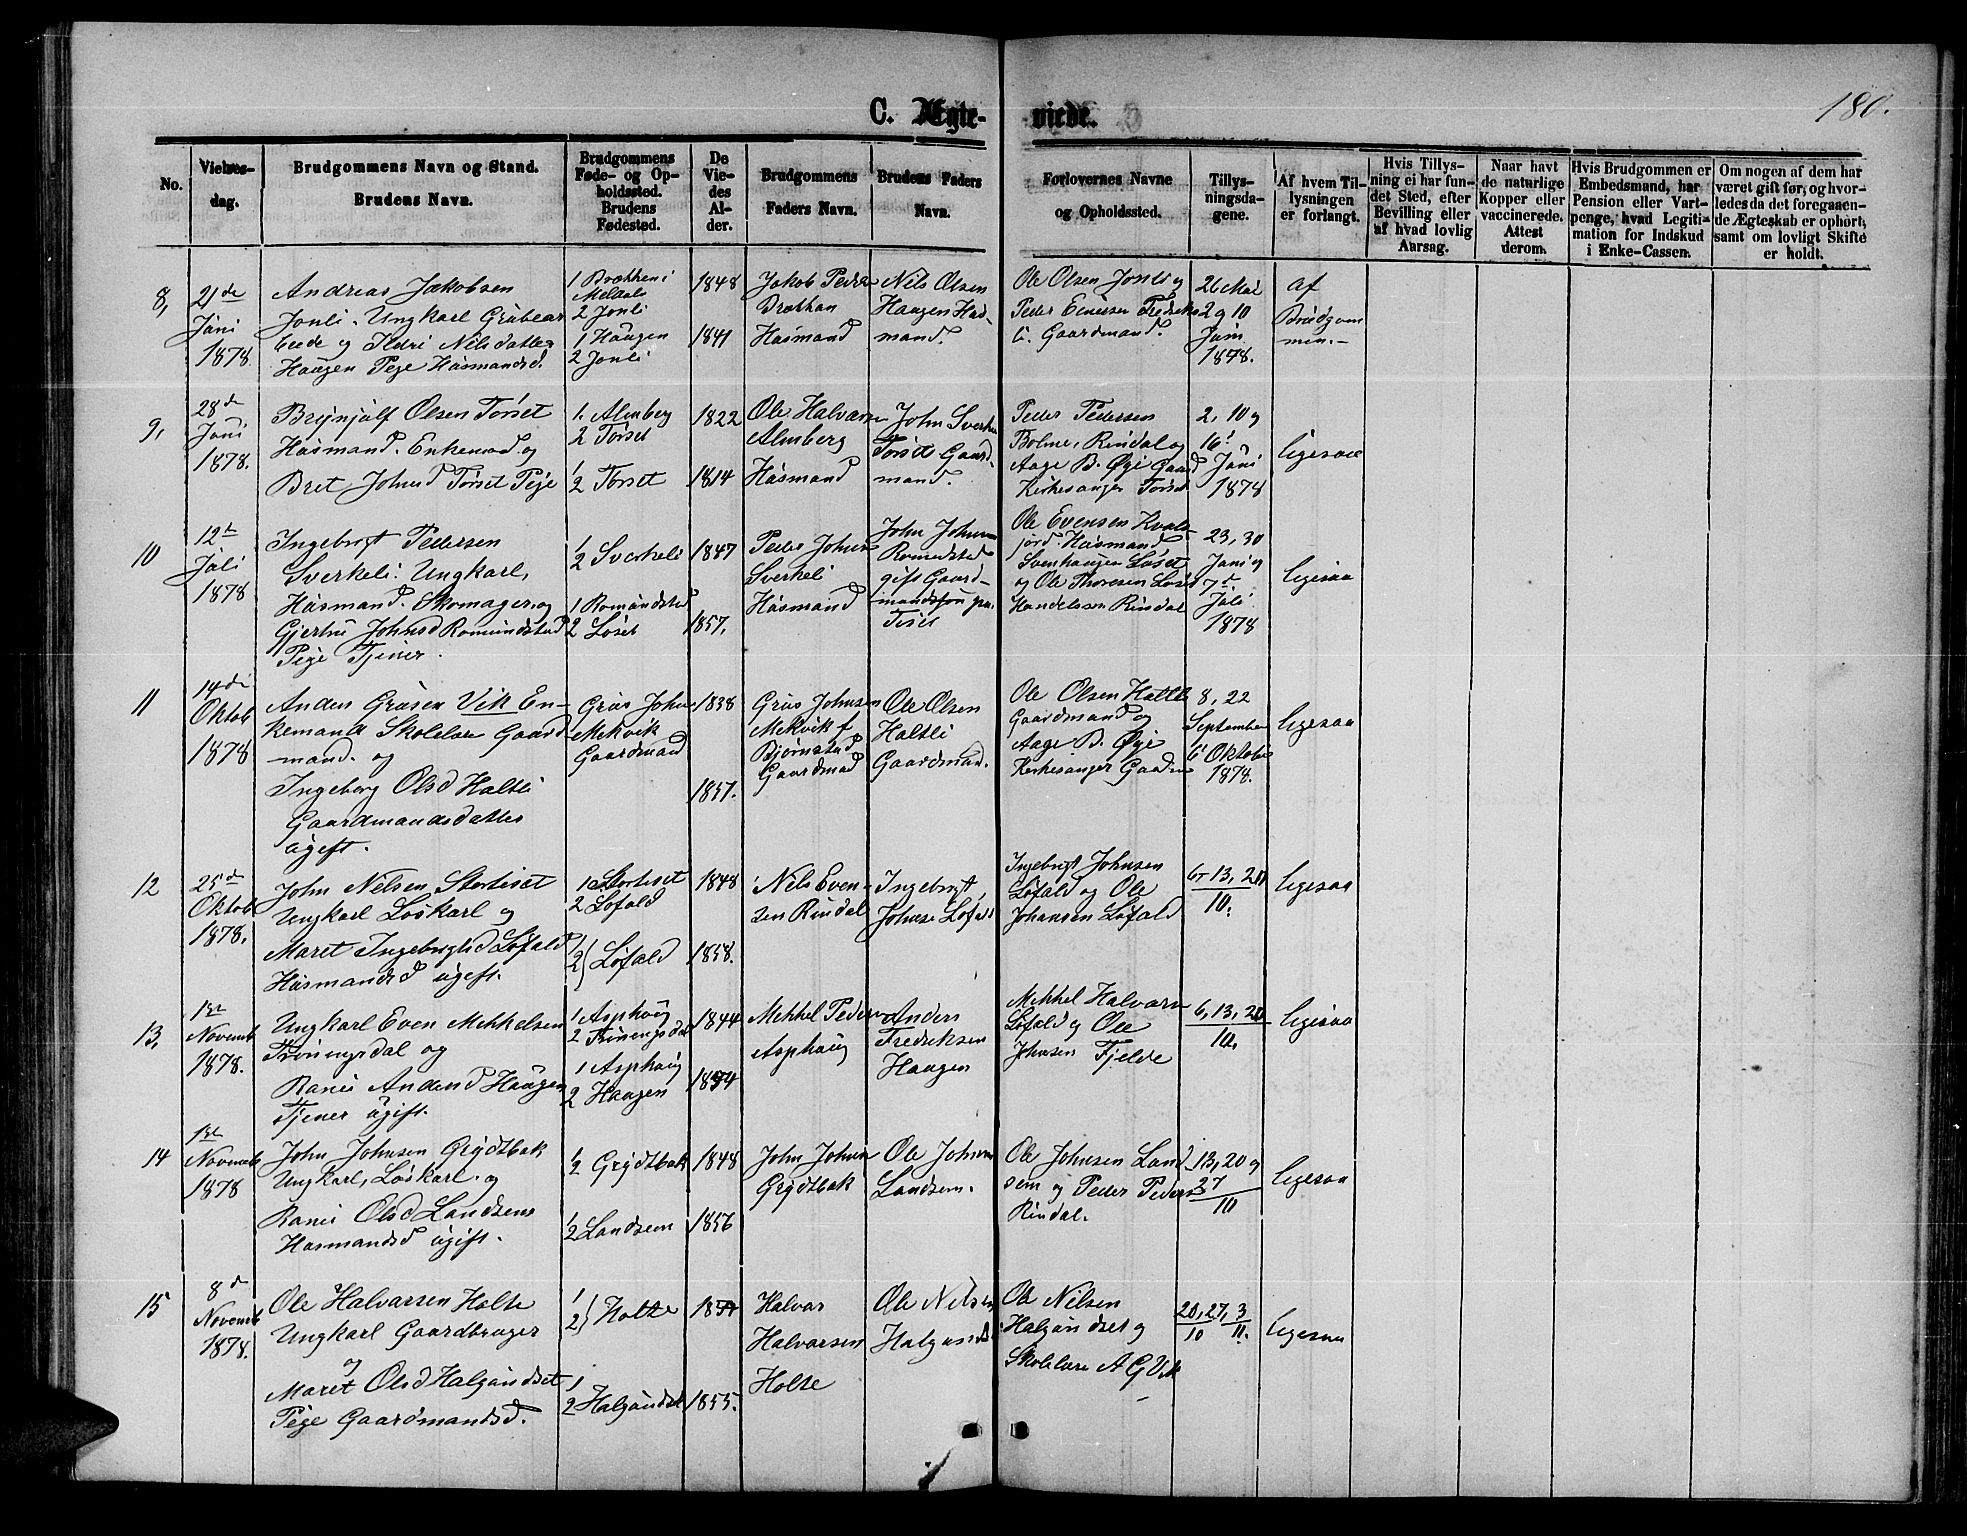 180.
C. Ægte-
viede.
No.
Vielses-
dag.
Brudgommens Navn og Stand.
Brudens Navn.
Brudgommens
Føde- og Op-
holdssted.
Brudens
Fødested.
De
Vie-
des
Al-
der.
Brudgommens
Faders Navn.
Brudens Faders
Navn.
Forlovernes Navne
og Opholdssted.
Tillys-
ningsda-
gene.
Af hvem Til-
lysningen
er forlangt.
Hvis Tillys-
ning ei har fun-
det Sted, efter
Bevilling eller
af hvad lovlig
Aarsag.
Naar havt
de naturlige
Kopper eller
vaccinerede.
Attest
derom.
Hvis Brudgommen er
Embedsmand, har
Pension eller Vart-
penge, hvad Legiti-
mation for Indskud
i Enke-Cassen.
Om nogen af dem har
været gift før, og hvor-
ledes da det foregaaen-
de Ægteskab er ophørt,
samt om lovligt Skifte
er holdt.
8,
21de
Juni
1878.
Andreas Jakobsen
Jonli. Ungkarl
og Nilsdatter
Haugen Pige Husmandsd.
1 Brækken i
Meldalr
2 Jonli
1 Haugen
2 Jonli
1848
1841
Jakob Peders
Brækken
Husmand
Nils Olsen
Haugen Hus-
mand.
Ole Olsen Jonli og
Peder Einersen
Gaardmand.
26 Mai
2 og 10
Juni
1878.
af
Brudgom
men.-
9,
28d
Juni
1878.
Brynjulf Olsen Torset
Husmand. Enkemand og
Bret Johnsd Torset Pige
1. Almberg
2 Torset
1/2 Torset
1822
1814
Ole Halvarsn
Almberg
Husmand
John Sverkes
Torset Gaard-
mand.
Peder Pedersen
Bolme, Rindal og
Aage B. Øye Gaard
Kirkesanger Torset
2, 10 og
16.
Juni
1878
ligesaa
10
12te
Juli
1878
Ingebrigt Pedersen
Sverkeli. Ungkarl,
Husmand. Skomager og
Gjertru Johnsd Romundstad
Pige Tjener.
1
2 Sverkeli
1 Romundstad
2 Løset
1847
1857.
Peder Johnsen
Sverkeli
Husmand
John Johnsen
Romundstad
gift Gaard-
mandssøn paa
Tiset
Ole Evensen Kvals-
jord. Husmand
Svenhaugen Løset
og Ole Thoresen Løset
Handelsm Rindal
23, 30
Juni og
7de
Juli
1878
ligesaa
11
14de
Oktob
1878
Anders Gruesen Vik En-
kemand Skolelærer Gaard
mand. og
Ingeberg Olsd Haltli
Gaardmandsdatter
ugift.
Grus Johns
Mekvik
Gaardmand
1838
1857.
Grus Johnsen
Mekvik f
Bjørnstad
Gaardmand
Ole Olsen
Haltli
Gaardmand.
Ole Olsen Haltli
Gaardmand og
Aage B. Øye
Kirkesanger Gaardm
8, 22
September
6 Oktober
1878.
ligesaa
12
25de
Oktob
1878.
John Nelsen Stortiset
Ungkarl Løskarl og
Maret Ingebrigtsd Løfald
Husmandsd ugift.
1 Stortiset
2 Løfald
1
2} Løfald
1848
1858.
Nils Even-
sen Rindal
Ingebrigt
Johnse Løfald
Ingebrigt Johnsen
Løfald og Ole
Johansen Løfald
6, 13, 20
10.
ligesaa
13,
1ste
Novemb
1878.
Ungkarl Even Mikkelsen
Trøningsdal og
Ranei Andersd Haugen
Tjener ugift.
1 Asphaug
2 Trøningsdal
1 Asphaug
2 Haugen
1844
1854
Mikkel Peders
Asphaug
Anders
Fredriksen
Haugen
Mikkel Halvarsn
Løfald og Ole
Johnsen Fjelde
6, 13, 20
10.
ligesaa
14
1ste
Novemb
1878
John Johnsen Grydtbak
Ungkarl, Løskarl. og
Ranei Olsd Landsem
Husmandsd ugift.
1/2 Grydtbak
1
2 Landsem
1848
1856
John Johnsn
Grydtbak
Ole Johnsen
Landsem.
Ole Johnsen Land
sem og Peder Peders
Rindal.
13, 20 og
27
10
ligesaa
15
8d
Novemb
1878.
Ole Halvarsen Holte
Ungkarl Gaardbruger
og
Maret Olsd Halgundset
Pige Gaardmandsd.
1
2} Holte
1
2 Halgundset
1855.
Halvar
Halvarsen
Holte
Ole Nelsen
Halgunds
Ole Nilsen
Halgundset og
Skolelære A G Vik
20, 27, 3
10 11.
ligesaa